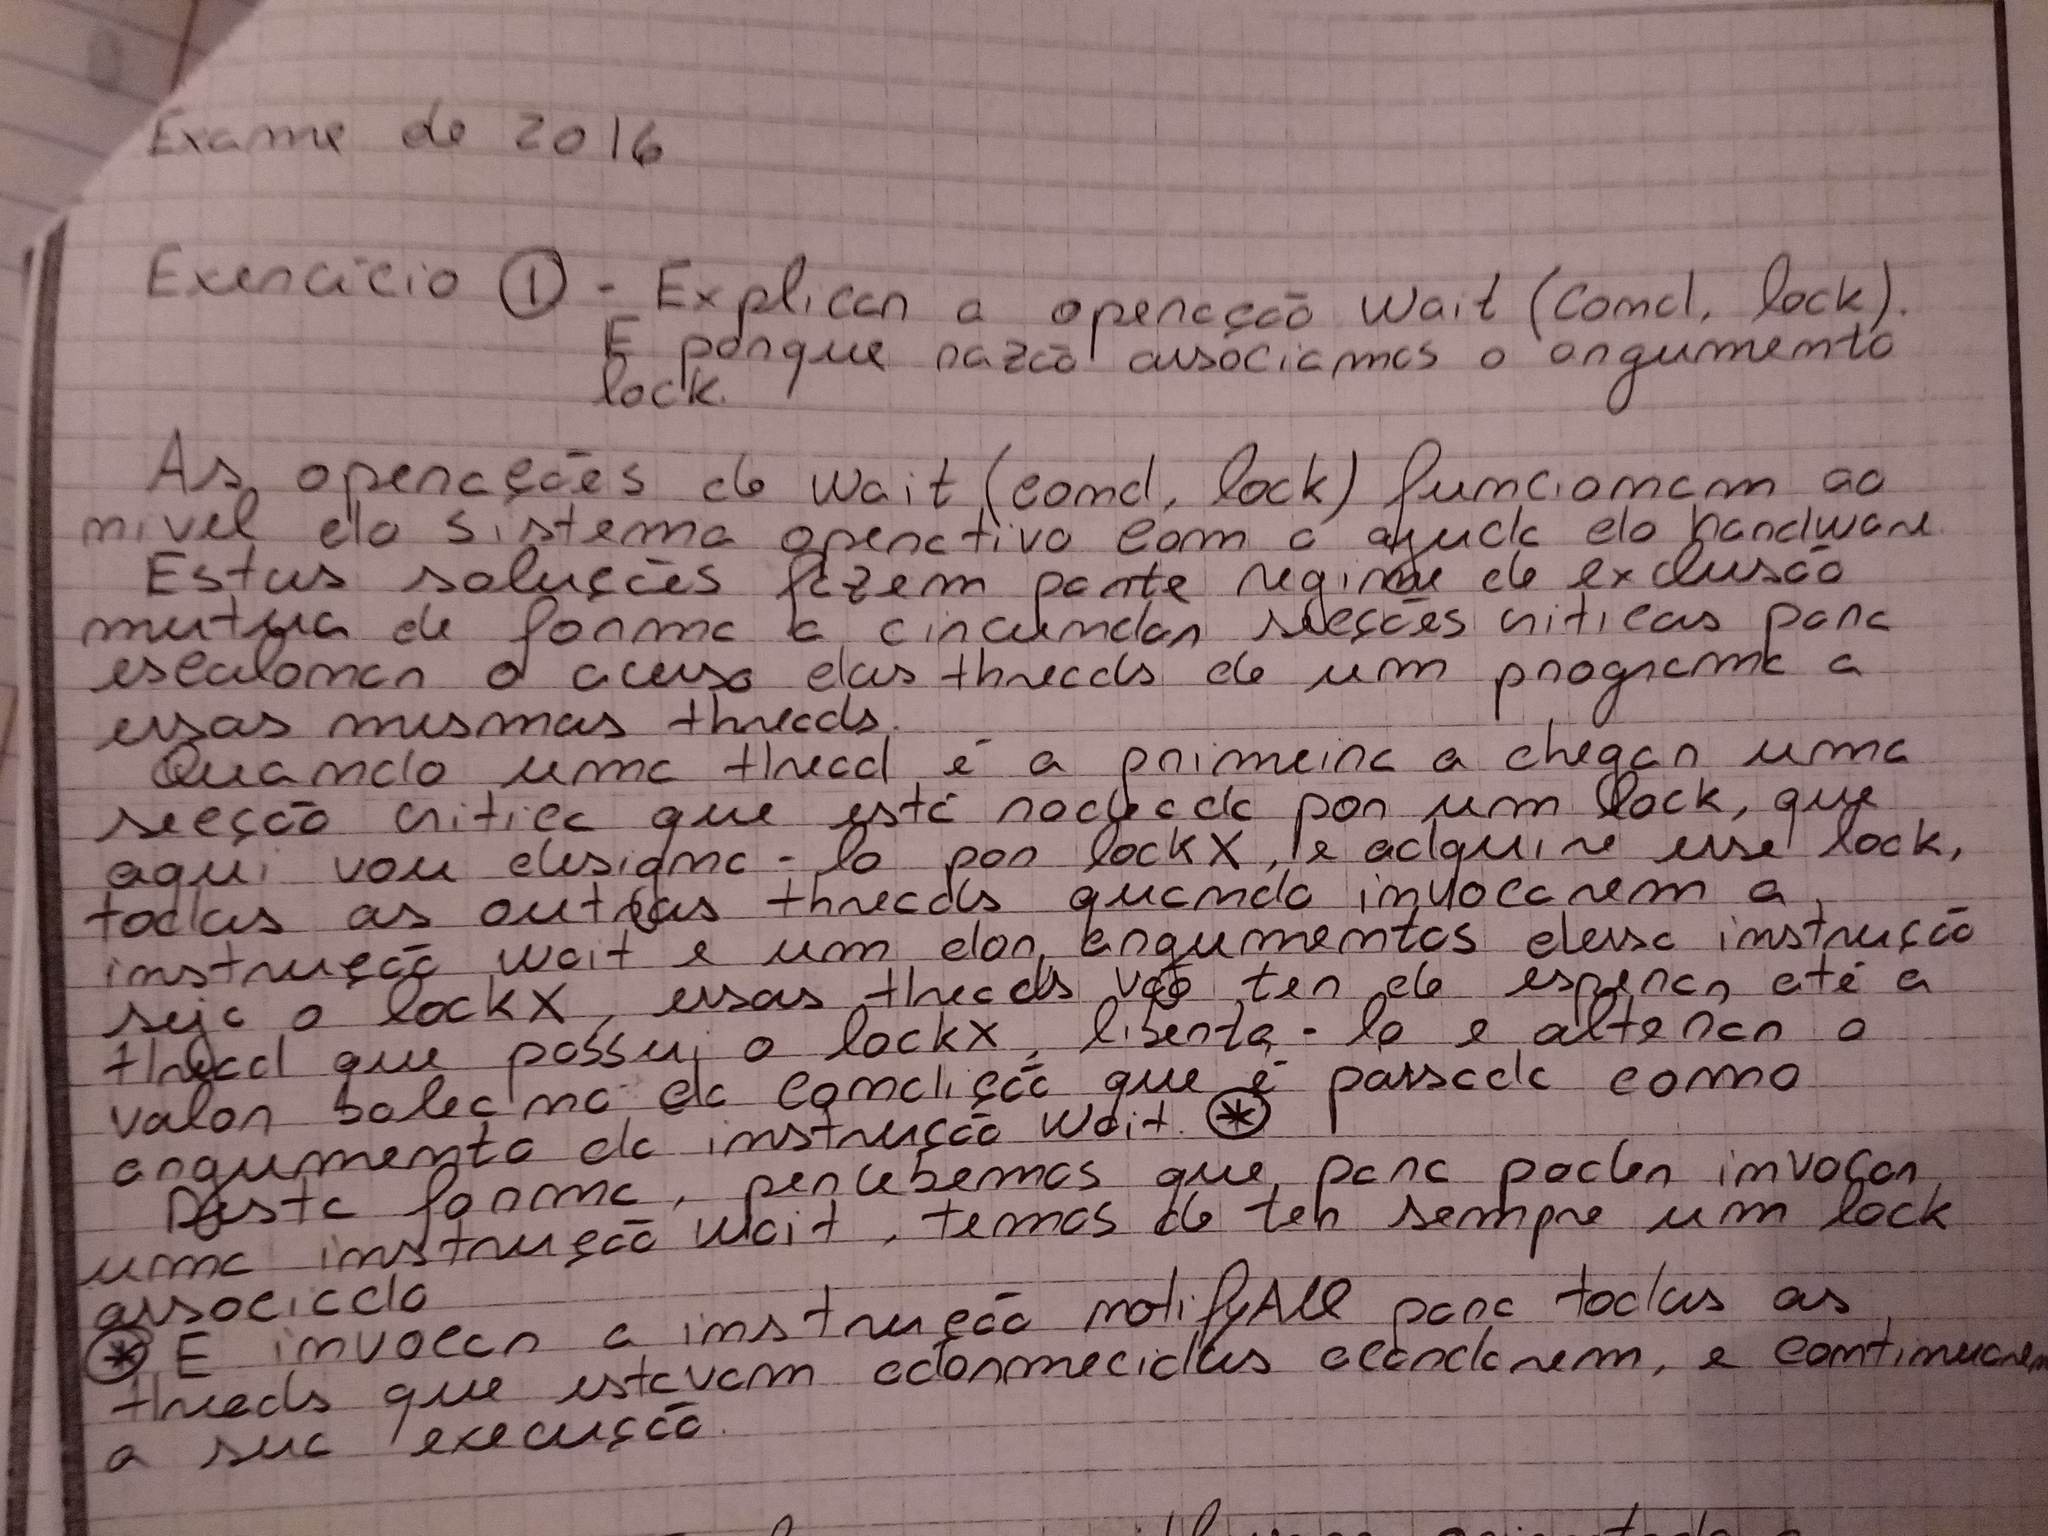 Exame de 2016
Exercício ① - Explicar a operação Wait (Cond, lock).
E porque razão associamos o argumento
lock.
As operações de Wait (cond, lock) funcionam ao
nivel do sistema operativo com a ajuda do hardware.
Estas soluções fazem parte regime de exclusão
mutua de forma a circundar secções criticas para
escalonar o acesso das threads de um programa a
essas mesmas threads.
Quando uma thread é a primeira a chegar uma
secção critica que está rodeada por um lock, que
aqui vou designa-lo por lockX, e adquire esse lock,
todas as outras threads quando invocarem a
instrução wait e um dos argumentos dessa instrução
seja o lockX, essas threads vão ter de esperar até a
thread que possui o lockX, liberta-lo e alterar o
valor boleano da condição que é passada como
argumento da instrução Wait. ⊛
Desta forma, percebemos que para poder invocar
uma instrução Wait, temos de ter sempre um lock
associado
⊛ E invocar a instrução notifyAll para todas as
threads que estavam adormecidas acordarem, e continuarem
a sua execução.